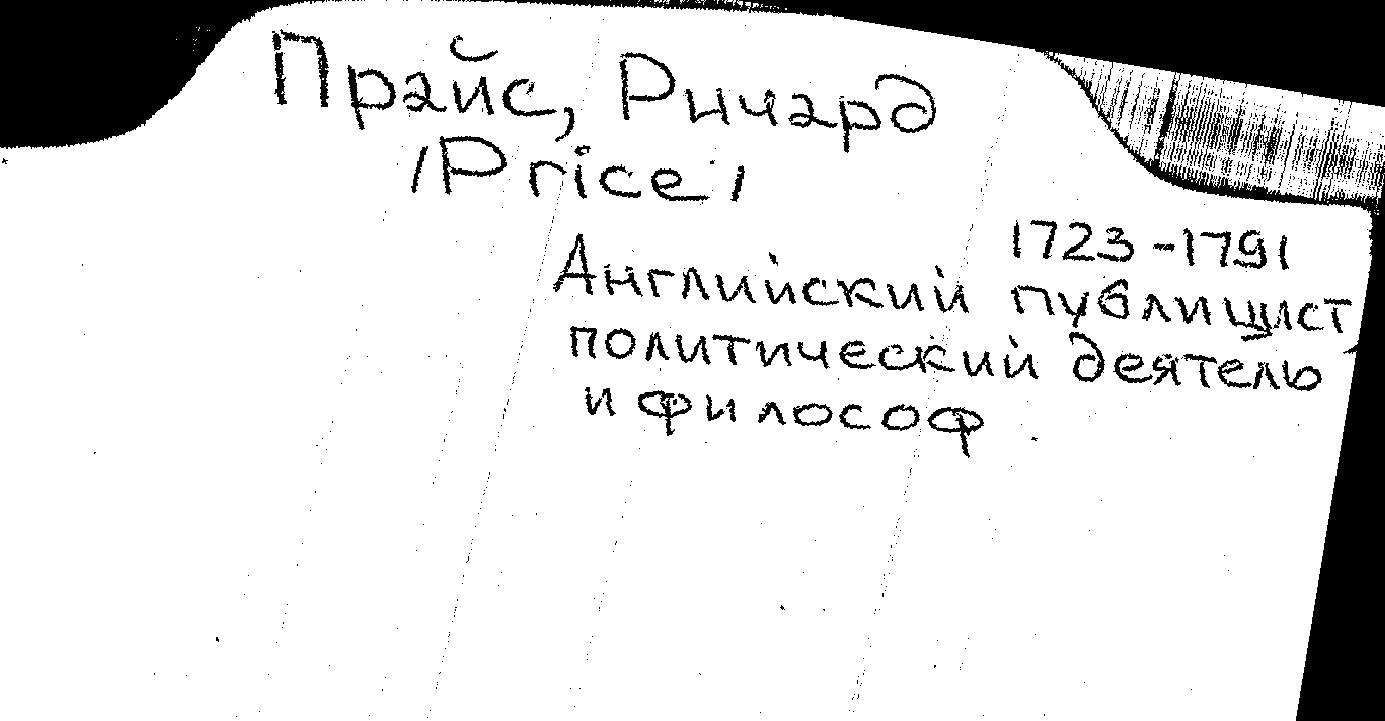 Прайс, Ричард
/Price/
1723-1791
Английский публицист,
политический деятель
и философ